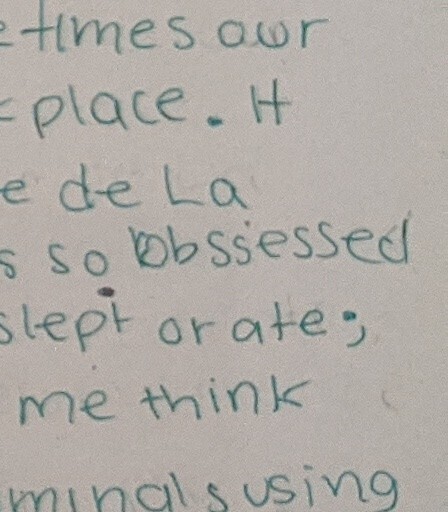 etimes our
place. It
e de La
s so obssiessed
slept or ate;
me think
minals using